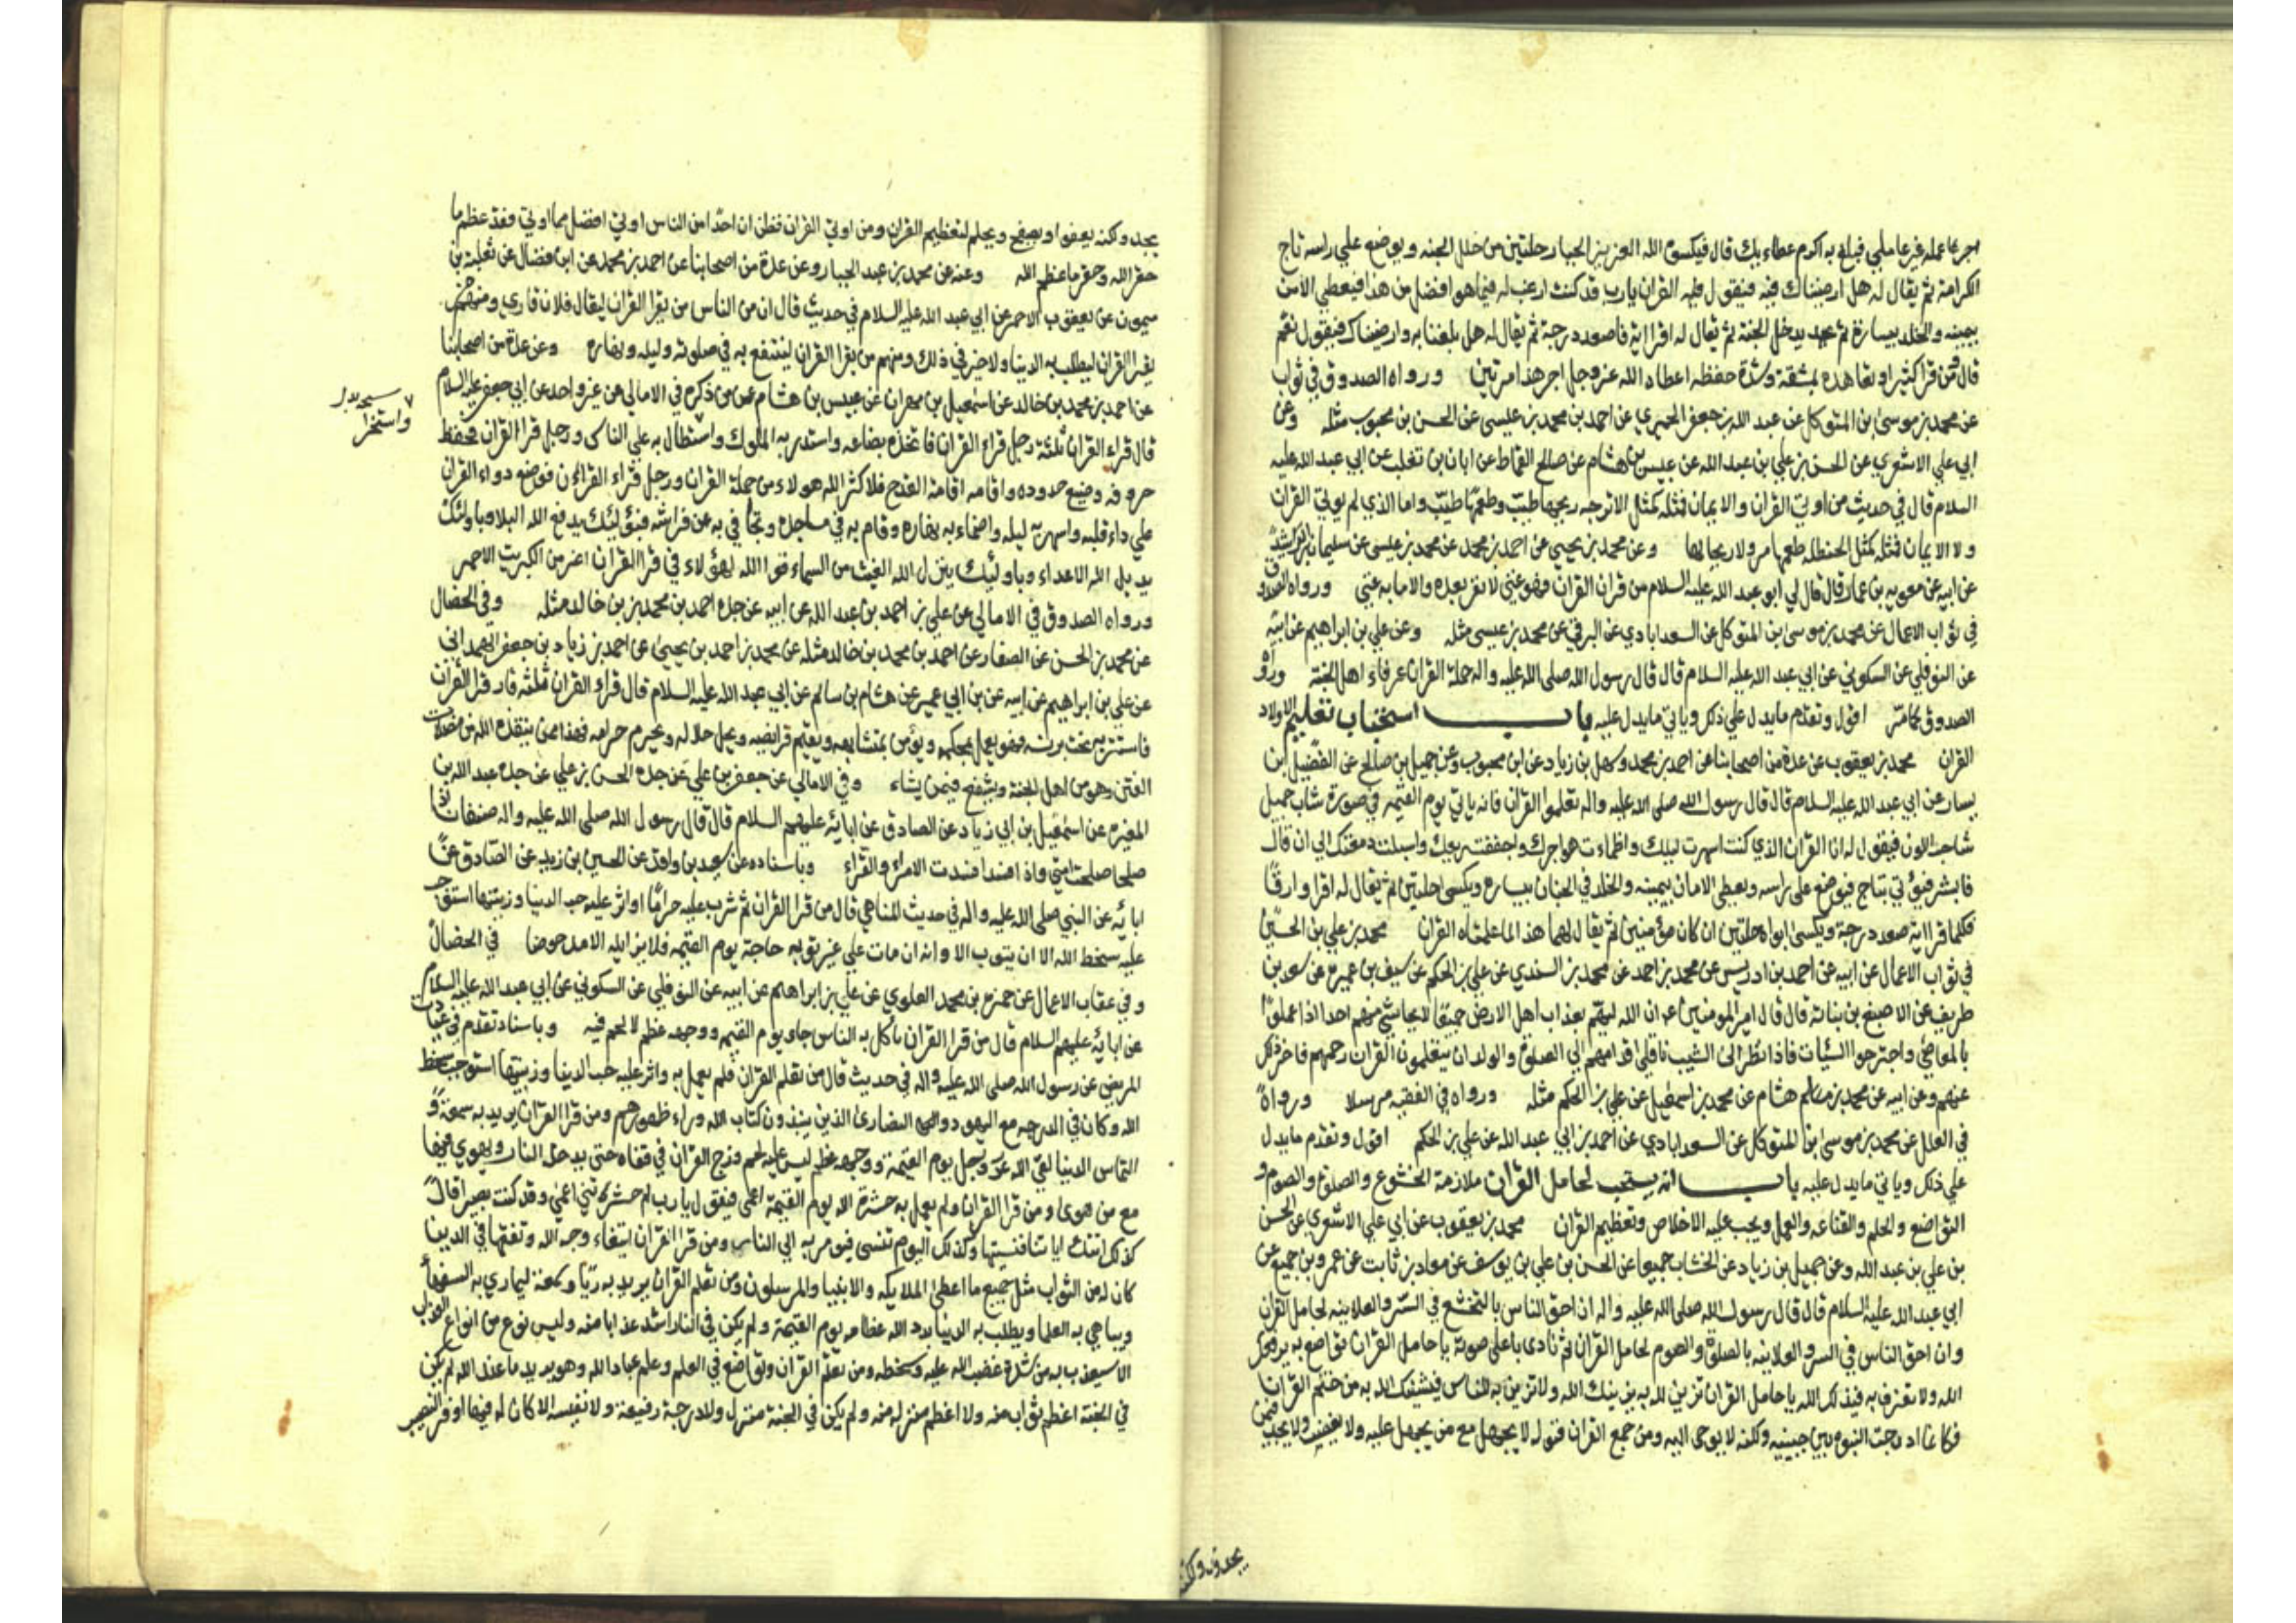 اجر عمله غير عاملي فبلغ به اكرم عطاء يك قال فيكسوه الله العزيز الجبار حلتين من حلل الجنه ويوضع علي راسه تاج
الكرامة ثم يقال له هل ارضيناك فيه فيقول فيه القران يارب قد كنت ارغب له فيما هو افضل من هذا فيعطي الامن
بيمينه والخلد بيساره ثم يدخل الجنة ثم يقال له اقرا اية فاصعد درجة ثم يقال له هل بلغنا به وارضيناك فيقول نعم
قال ومن قرا كثيرا وتعاهده بمشقة وشدة حفظه اعطاه الله عز وجل اجر هذا مرتين ورواه الصدوق في ثواب
عن محمد بن موسى بن المتوكل عن عبد الله بن جعفر الحميري عن احمد بن محمد بن عيسى عن الحسن بن محبوب مثله وعن
ابي علي الاشعري عن الحسن بن علي بن عبد الله عن عبيس بن هشام عن صالح القماط عن ابان بن تغلب عن ابي عبد الله عليه
السلام قال في حديث من اوتي القران والايمان فمثله كمثل الاترجه ريحها طيب وطعمها طيب واما الذي لم يوتي القران
ولا الايمان فمثله كمثل الحنظله طعمها مر ولا ريح لها وعن محمد بن يحيي عن احمد بن محمد عن محمد بن عيسى عن سليمان بن رشيد
عن ابيه عن معويه بن عمار قال قال لي ابو عبد الله عليه السلام من قران القران فهو غني لا فقر بعده والا ما به غني ورواه الصدوق
في ثواب الاعمال عن محمد بن موسى بن المتوكل عن السعدابادي عن البرقي عن محمد بن عيسى مثله وعن علي بن ابراهيم عن ابيه
عن النوفلي عن السكوني عن ابي عبد الله عليه السلام قال قال رسول الله صلى الله عليه واله حملة القران عرفاء اهل الجنة ورواه
الصدوق كما مر اقول وتقدم ما يدل علي ذلك وياتي ما يدل عليه باب استحباب تعليم الاولاد
القران محمد بن يعقوب عن عدة من اصحابنا عن احمد بن محمد وسهل بن زياد عن ابن محبوب عن جميل بن صالح عن الفضيل ابن
يسار عن ابي عبد الله عليه السلام قال قال رسول الله صلى الله عليه واله تعلموا القران فانه ياتي يوم القيمه في صورة شاب جميل
شاحب اللون فيقول له انا القران الذي كنت اسهرت ليلك واظمات هواجرك واجففت ريقك واسبلت دمعتك الي ان قال
فابشر فيؤتي بتاج فيوضع علي راسه ويعطي الامان بيمينه والخلد في الجنان بيساره ويكسي حلتين ثم يقال له اقرا وارقا
فكلما قرا اية صعد درجة ويكسى ابواه حلتين ان كان مؤمنين ثم يقال لهما هذا لما علمتاه القران محمد بن علي بن الحسين
في ثواب الاعمال عن ابيه عن احمد بن ادريس عن محمد بن احمد عن محمد بن السندي عن علي بن الحكم عن سيف بن عميره عن سعد بن
طريف عن الاصبغ بن نباتة قال قال امير المومنين ان الله ليهم بعذاب اهل الارض جميعا لا يحاشي منهم احدا اذا عملوا
بالمعاصي واجترحوا السيئات فاذا نظر الى الشيب ناقلي اقدامهم الي الصلوة والولدان يتعلمون القران رحمهم فاخر ذلك
عنهم وعن ابيه عن محمد بن هشام عن محمد بن اسمعيل عن علي بن الحكم مثله ورواه في الفقيه مرسلا ورواه
في العلل عن محمد بن موسى بن المتوكل عن السعدابادي عن احمد بن ابي عبد الله عن علي بن الحكم اقول وتقدم ما يدل
علي ذلك وياتي ما يدل عليه باب انه يستحب لحامل القران ملازمة الخشوع والصلوة والصوم و
التواضع والحلم والقناعه والعمل ويجب عليه الاخلاص وتعظيم القران محمد بن يعقوب عن ابي علي الاشعري عن الحسن
بن علي بن عبد الله وعن جميل بن زياد عن الخشاب جميعا عن الحسن بن علي بن يوسف عن معاد بن ثابت عن عمرو بن جميع عن
ابي عبد الله عليه السلام قال قال رسول الله صلى الله عليه واله ان احق الناس بالتخشع في السر والعلانيه لحامل القران
وان احق الناس في السر والعلانيه بالصلوة والصوم لحامل القران ثم نادى باعلى صوته يا حامل القران تواضع به يرفعك
الله ولا تعزز به فيذلك الله يا حامل القران تزين لله به يزينك الله ولا تزين به للناس فيشينك الله به من ختم القران
فكانما ادرجت النبوه بين جنبيه ولكنه لا يوحى اليه ومن جمع القران فنوله لا يجهل مع من يجهل عليه ولا يغضب ولا يجد فيمن
يجد ولكنه
يجد ولكنه يعفوا ويصفح ويحلم لتعظيم القران ومن اوتي القران فظن ان احدا من الناس اوتي افضل مما اوتي فقد عظم ما
حقر الله وحقر ما عظم الله وعنه عن محمد بن عبد الجبار وعن عدة من اصحابنا عن احمد بن محمد عن ابن فضال عن ثعلبة بن
ميمون عن يعقوب الاحمر عن ابي عبد الله عليه السلام في حديث قال ان من الناس من يقرا القران ليقال فلان قاري ومنهم من
يقرا القران ليطلب به الدنيا ولا خير في ذلك ومنهم من يقرا القران لينتفع به في صلوته وليله ونهاره وعن عدة من اصحابنا
عن احمد بن محمد بن خالد عن اسمعيل بن مهران عن عبيس بن هشام عمن ذكره في الامالي عن غير واحد عن ابي جعفر عليه السلام
قال قراء القران ثلثة رجل قراء القران فاتخذه بضاعه واستدر به الملوك واستطال به علي الناس ورجل قرا القران فحفظ
حروفه وضيع حدوده واقامه اقامة القدح فلا كثر الله هولاء من حملة القران ورجل قراء القران فوضع دواء القران
علي داء قلبه واسهر به ليله واضماء به نهاره وقام به في مساجده وتجافي به عن فراشه فبؤلئك يدفع الله البلاء وباولئك
يديل الله الاعداء وباولئك ينزل الله الغيث من السماء فوا الله لهؤلاء في قرا القران اعز من الكبريت الاحمر
ورواه الصدوق في الامالي عن علي بن احمد بن عبد الله عن ابيه عن جده احمد بن محمد بن خالد مثله وفي الخصال
عن محمد بن الحسن عن الصفار عن احمد بن محمد بن خالد مثله عن محمد بن احمد بن يحيى عن احمد بن زياد بن جعفر الهمداني
عن علي بن ابراهيم عن ابيه عن بن ابي عمير عن هشام بن سالم عن ابي عبد الله عليه السلام قال قراء القران ثلثة قار قرا القران
فاستتر به تحت برنسه فهو يعمل بمحكمه ويؤمن بمتشابهه ويقيم فرايضه ويحل حلاله ويحرم حرامه فهذا ممن ينقذه الله من مضلات
الفتن وهو من اهل الجنة ويشفع فيمن يشاء وفي الامالي عن جعفر بن علي عن جده الحسن بن علي عن جده عبد الله بن
المغيره عن اسمعيل بن ابي زياد عن الصادق عن ابائه عليهم السلام قال قال رسول الله صلى الله عليه واله صنفان اذا
صلحا صلحت امتي واذا فسدا فسدت الامراء والقراء وباسناده عن بن واقد عن الحسين بن زيد عن الصادق عن
ابائه عن النبي صلى الله عليه واله في حديث المناهي قال من قرا القران ثم شرب عليه حراما او اثر عليه حب الدنيا وزينتها استوجب
عليه سخط الله الا ان يتوب الا وانه ان مات علي غير توبه حاجه يوم القيمه فلا يزايله الا مدحوضا في الخصال
وفي عقاب الاعمال عن حمزه بن محمد العلوي عن علي بن ابراهيم عن ابيه عن النوفلي عن السكوني عن ابي عبد الله عليه السلام
عن ابائه عليهم السلام قال من قرا القران ياكل به الناس جاء يوم القيمه ووجهه عظم لا لحم فيه وباسناد تقدم في عيادت
المريض عن رسول الله صلى الله عليه واله في حديث قال من تعلم القران فلم يعمل به واثر عليه حب الدنيا وزينتها استوجب سخط
الله وكان في الدرجه مع اليهود والنصارى الذين ينبذون كتاب الله وراء ظهورهم ومن قرا القران يريد به سمعة و
التماس الدنيا لقي الله عز وجل يوم القيمه ووجهه عظم ليس عليه لحم وزج القران في قفاه حتى يدخله النار ويهوي فيها
مع من هوى ومن قرا القران ولم يعمل به حشره الله يوم القيمة اعمى فيقول يا رب لم حشرتني اعمى وقد كنت بصيرا قال
كذلك اتتك اياتنا فنسيتها وكذلك اليوم تنسى فيومر به الي النار ومن قرا القران ابتغاء وجه الله وتفقها في الدين
كان له من الثواب مثل جميع ما اعطى الملايكه والانبيا والمرسلون ومن تعلم القران يريد به ريا وسمعة ليماري به السفهاء
ويباهي به العلما ويطلب به الدنيا بدد الله عظامه يوم القيمة ولم يكن في النار اشد عذابا منه وليس نوع من انواع العذاب
الا سيعذب به من شدة غضب الله عليه وسخطه ومن تعلم القران وتواضع في العلم وعلم عباد الله وهو يريد ما عند الله لم يكن
في الجنة اعظم ثواب منه ولا اعظم منزله منه ولم يكن في الجنة منزل ولا درجة رفيعة ولا نفيسه الا كان له فيها اوفر النصيب